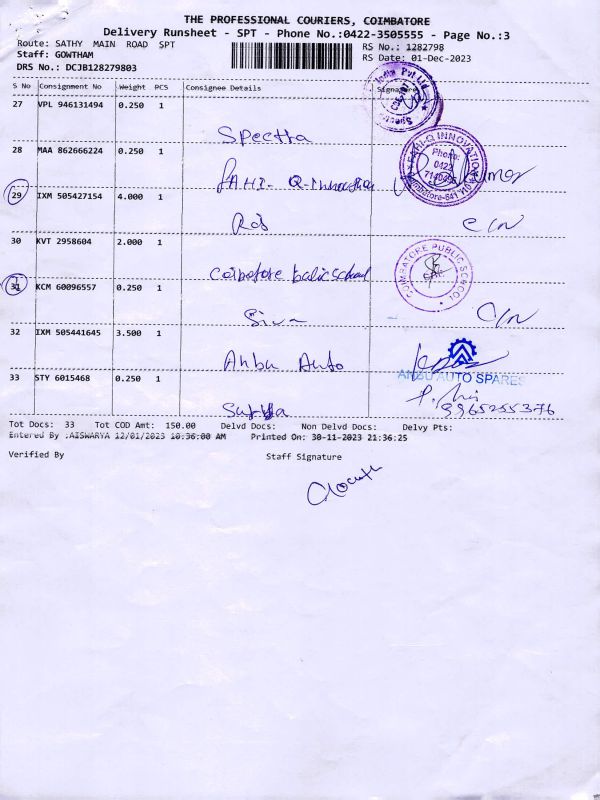 THE PROFESSIONAL COURIERS, COIMBATORE
Delivery Runsheet - SPT - Phone No.:0422-3505555 - Page No.:3
Route: SATHY MAIN ROAD SPT
RS No.: 1282798
Staff: GOWTHAM
RS Date: 01-Dec-2023
DRS No.: DCJB128279803
S No Consignment No Weight PCS Consignee Details Signature
India Pvt Ltd
27 VPL 946131494 0.250 1
Spectra
28 MAA 862666224 0.250 1
FAHI-Q INNOVATION
Phone:
0422
FAHI-Q-Innovation
29 IXM 505427154 4.000 1
Rob C/N
30 KVT 2958604 2.000 1
COIMBATORE PUBLIC SCHOOL
Coimbatore Public School
31 KCM 60096557 0.250 1
Siva C/N
32 IXM 505441645 3.500 1
Anbu Auto
ANBU AUTO SPARES
33 STY 6015468 0.250 1
Surya 9965255376
Tot Docs: 33 Tot COD Amt: 150.00 Delvd Docs: Non Delvd Docs: Delvy Pts:
Entered By :AISWARYA 12/01/2023 10:36:00 AM Printed On: 30-11-2023 21:36:25
Verified By Staff Signature